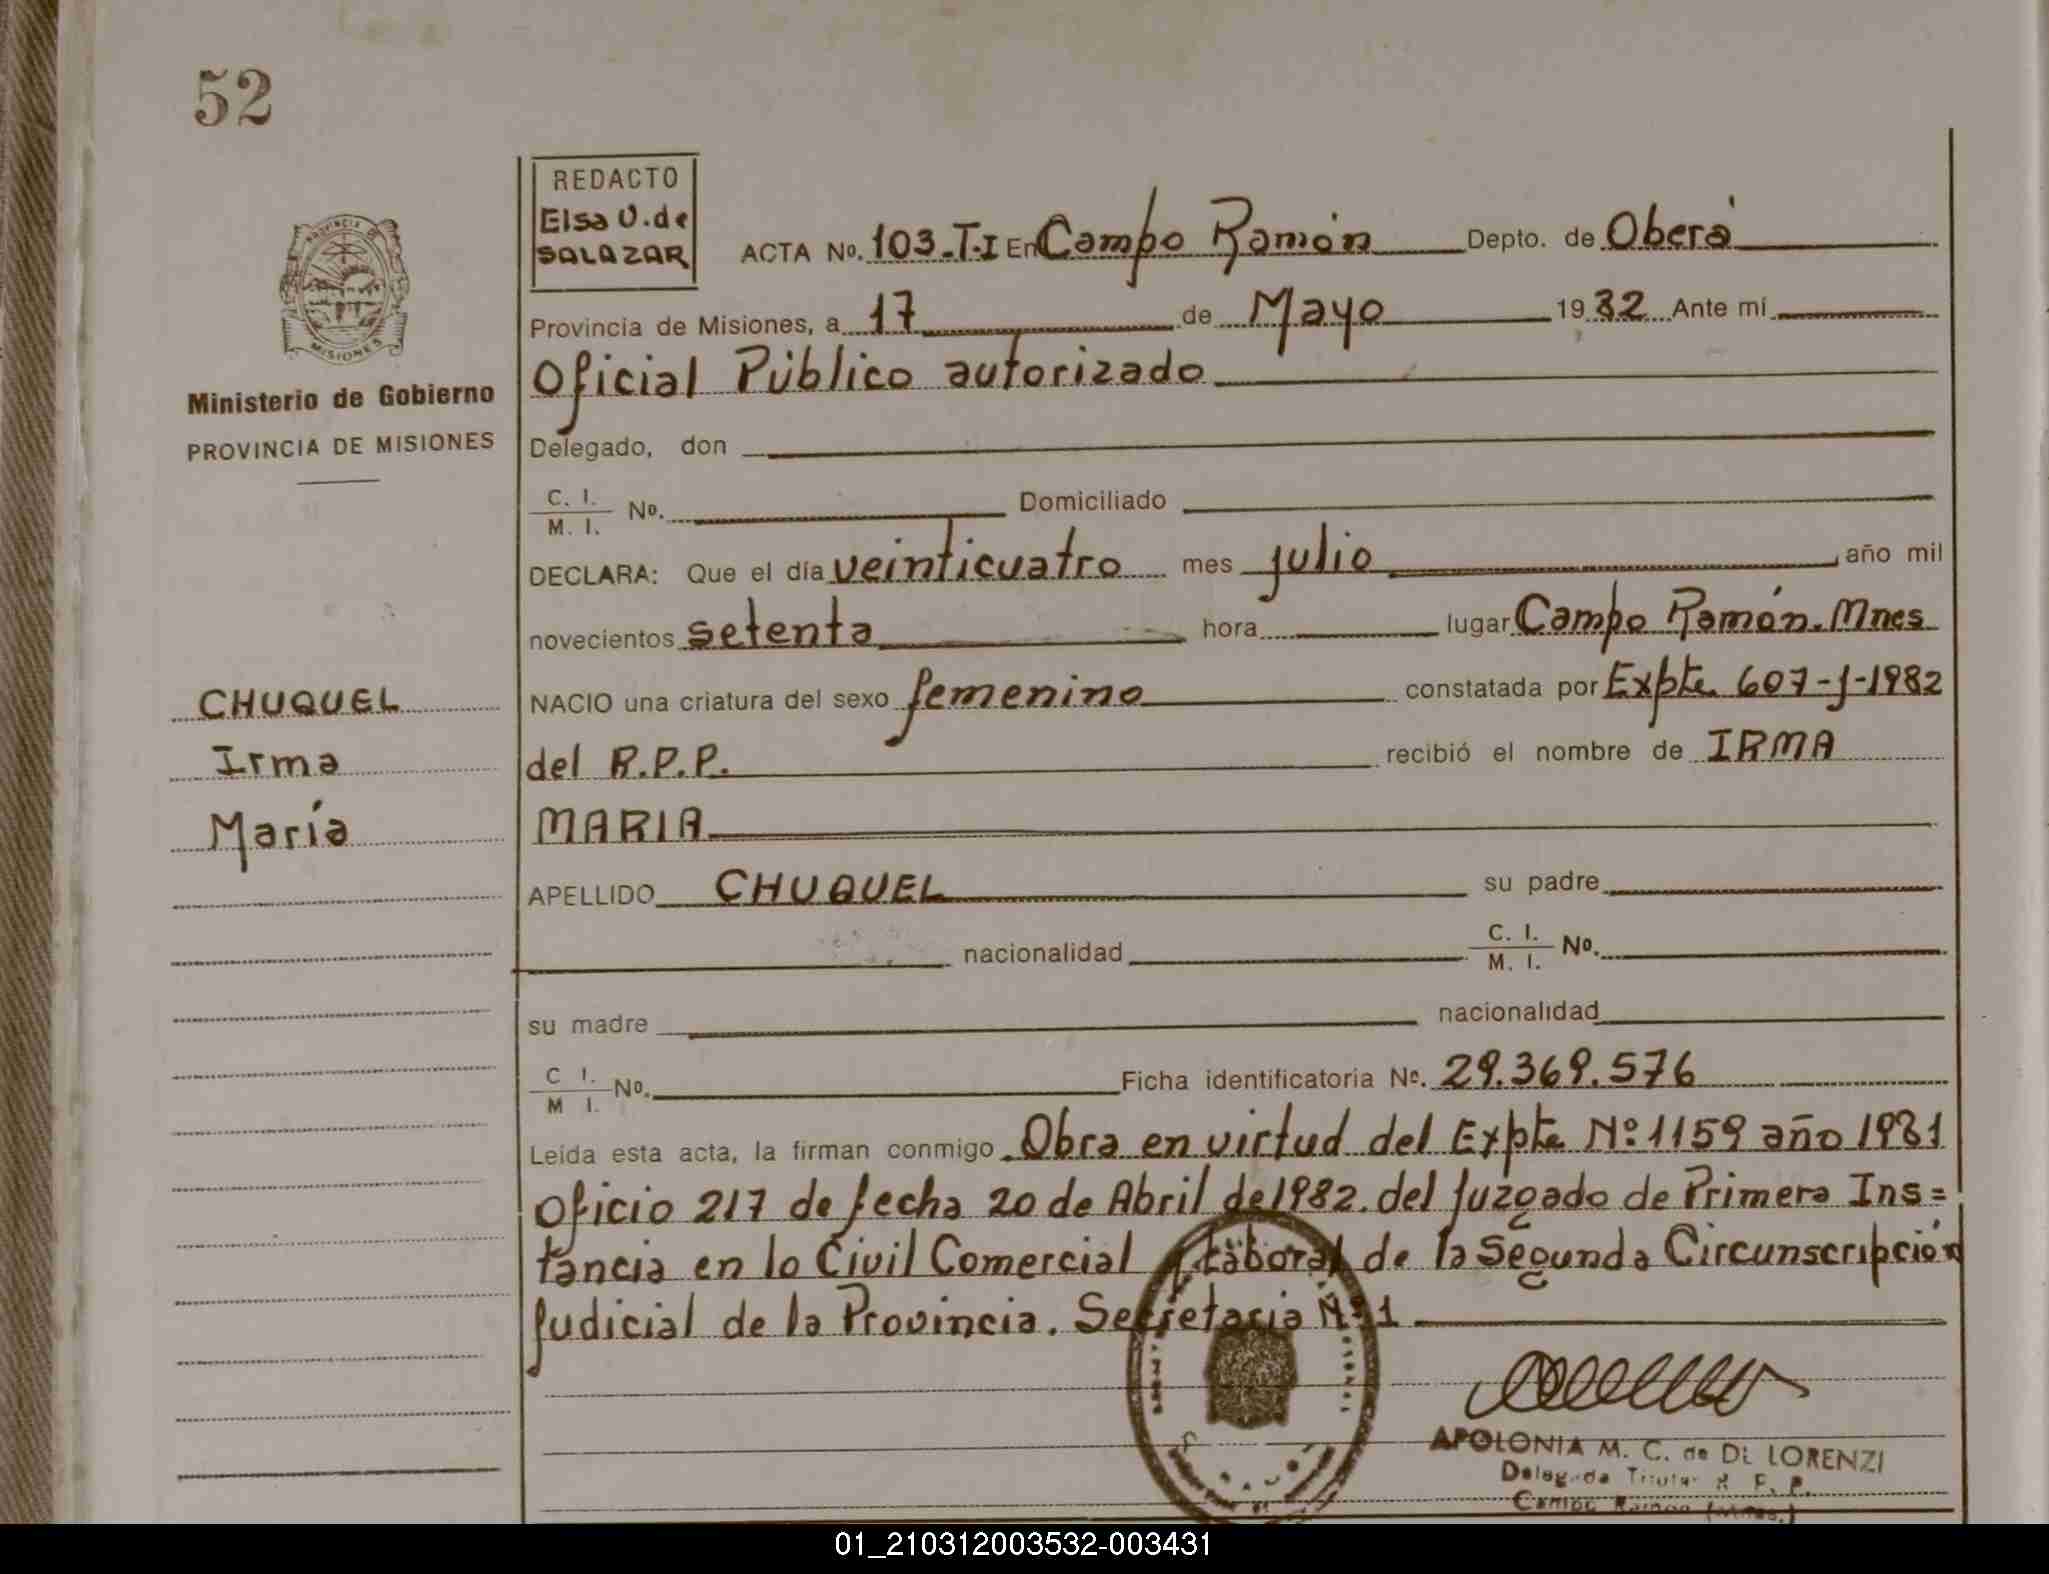 52
REDACTO
Elsa U. de
SALAZAR
ACTA No. 103-T-I En Campo Ramón Depto. de Oberá
Provincia de Misiones, a 17 de Mayo 1982 Ante mí
Oficial Público autorizado
PROVINCIA DE
MISIONES
Ministerio de Gobierno
PROVINCIA DE MISIONES
Delegado, don
C. I.
M. I. No. Domiciliado
DECLARA: Que el día veinticuatro mes julio año mil
novecientos setenta hora lugar Campo Ramón. Mnes
CHUQUEL
Irma
María
NACIO una criatura del sexo femenino constatada por Expte 607-J-1982
del R.P.P. recibió el nombre de IRMA
MARIA
APELLIDO CHUQUEL su padre
nacionalidad C. I.
M. I. No.
su madre nacionalidad
C I.
M I. No. Ficha identificatoria No. 29.369.576
Leída esta acta, la firman conmigo Obra en virtud del Expte Nº 1159 año 1981
Oficio 217 de fecha 20 de Abril de 1982. del Juzgado de Primera Ins=
tancia en lo Civil Comercial y Laboral de la Segunda Circunscripción
Judicial de la Provincia. Secretaria Nº 1
APOLONIA M. C. de DI LORENZI
Delegada Titular R. P. P.
Campo Ramon (Mnes.)
01_210312003532-003431